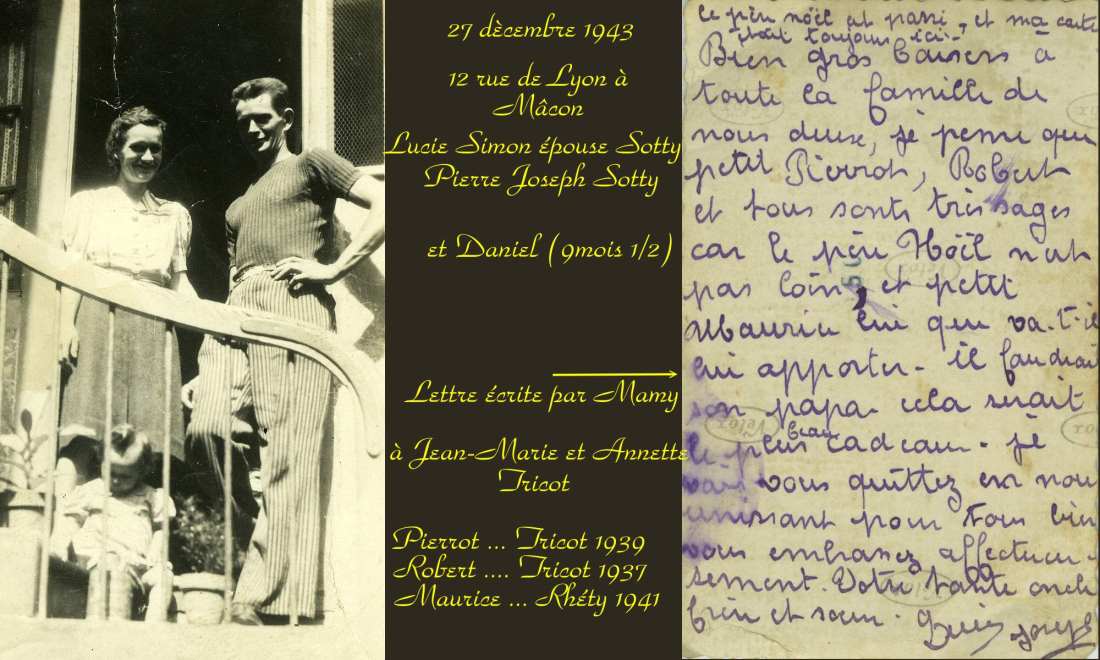 27 dècembre 1943
12 rue de Lyon à
Mâcon
Lucie Simon épouse Sotty
Pierre Joseph Sotty
et Daniel (9mois 1/2)
Lettre écrite par Mamy
à Jean-Marie et Annette
Tricot
Pierrot ... Tricot 1939
Robert .... Tricot 1937
Maurice ... Rhéty 1941
le père nöël est passé, et ma carte
était toujours ici.
Bien gros baisers à
toute la famille de
nous deux, je pense que
petit Pierrot, Robert
et tous sont très sages
car le père Nöël n'est
pas loin, et petit
Maurice lui que va-t-il
lui apporter. il faudrait
son papa. cela serait
le plus beau cadeau. je
vous quittez en nous
unissant pour tous bien
vous embrassez affectueu-
sement. Votre tante oncle
frère et sœur. Joseph
Velox